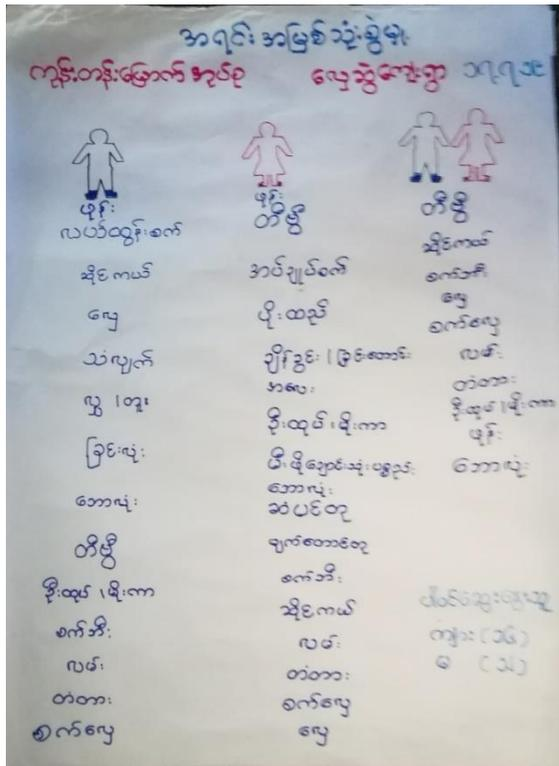 အရင်းအမြစ်သုံးစွဲမှု
ကုန်းတန်းမြောက်အုပ်စု လှေဆွဲကျေးရွာ ၁၇.၇.၁၉
ဖုန်း
လယ်ထွန်းစက်
ဆိုင်ကယ်
လှေ
သံလျက်
လွှ၊ တူ၊
ခြင်းလုံး
ဘောလုံး
တီဗွီ
ဦးထုပ်၊ မိုးကာ
စက်ဘီး
လမ်း
တံတား
စက်လှေ
ဖုန်း
တီဗွီ
အပ်ချုပ်စက်
ပိုးထည်
ချိန်ခွင်၊ ခြင်းတောင်း
အလေး
ဦးထုပ်၊ မိုးကာ
မီးဖိုချောင်သုံးပစ္စည်း
ဘောလုံး
ဆံပင်တု
မျက်တောင်တု
စက်ဘီး
ဆိုင်ကယ်
လမ်း
တံတား
စက်လှေ
လှေ
တီဗွီ
ဆိုင်ကယ်
စက်ဘီး
လှေ
စက်လှေ
လမ်း
တံတား
ဦးထုပ်၊ မိုးကာ
ဖုန်း
ဘောလုံး
ပါဝင်ဆွေးနွေးသူ
ကျား (၁၆)
မ